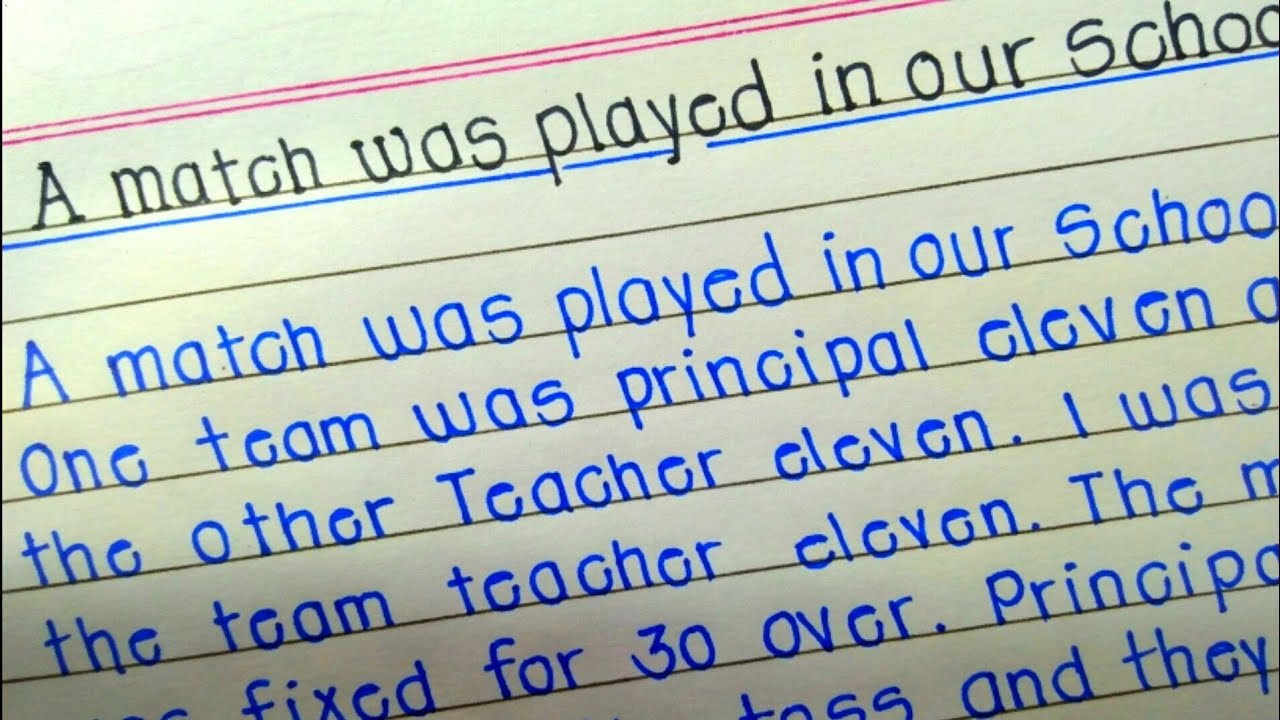 A match was played in our Schoo
A match was played in our Schoo
One team was principal eleven a
the other Teacher eleven. I was
the team teacher eleven. The m
fixed for 30 over. Principa
toss and they